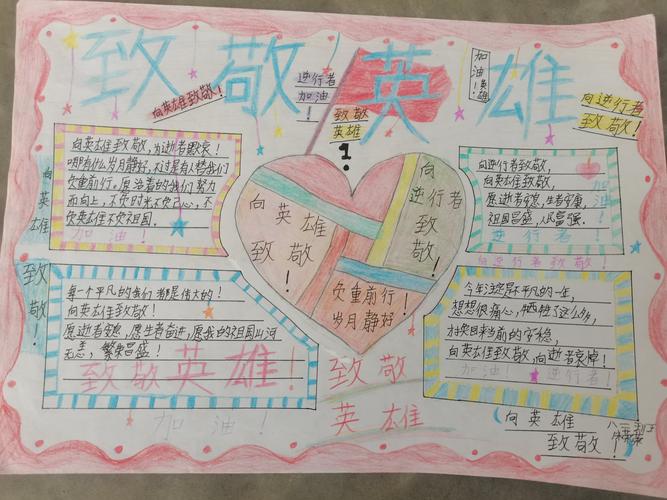 致敬英雄
向英雄致敬！
逆行者
加油！
致敬
英雄
加油！英雄
向逆行者
致敬！
向英雄致敬，为逝者默哀！
哪有什么岁月静好，不过是有人替我们
负重前行，愿活着的我们努力
而向上，不负时光不负己心，不
负英雄不负祖国。
加油！
向英雄
致敬！
向英雄
致敬！
向逆行者
致敬！
负重前行！
岁月静好！
向逆行者致敬，
向英雄致敬，
愿逝者安息，生者安康，
祖国昌盛，人民富强.
逆行者！
加油！
向逆行者致敬！
每一个平凡的我们都是伟大的！
向英雄致敬！
愿逝者安息，愿生者奋进，愿我的祖国山河
无恙，繁荣昌盛！
致敬英雄！
加油！
致敬
英雄
今年注定是不平凡的一年，
想想很痛心，牺牲了这么多，
才换回来当前的安稳，
向英雄致敬，向逝者哀悼！
加油！逆行者！
向英雄
致敬！